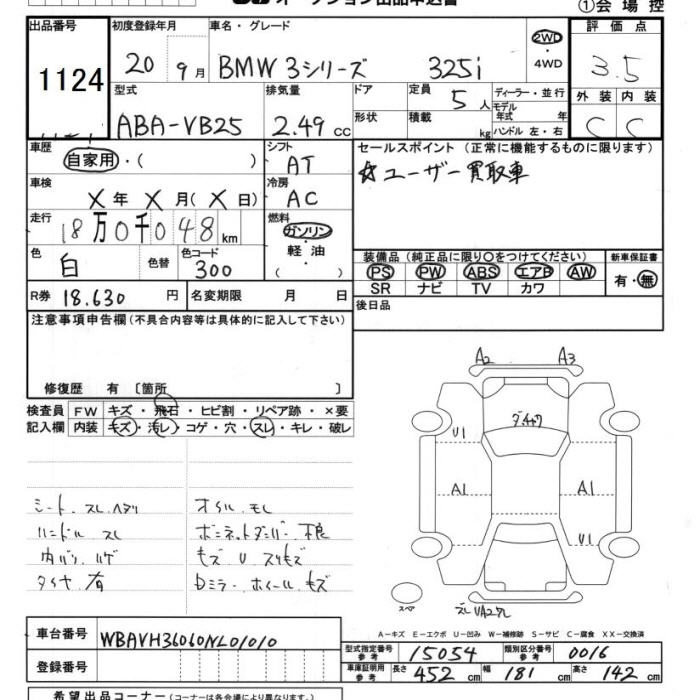 オークション出品申込書
①会場控
出品番号 初度登録年月 車名・グレード 評価点
1124 20 9月 BMW 3シリーズ 325i 2WD ・4WD 3.5
型式 排気量 ドア 定員 5人 ディーラー・並行 外装 内装
ABA-VB25 2.49 cc 形状 積載 kg モデル 年式 年 ハンドル 左・右 C C
車歴 自家用・( ) シフト AT セールスポイント (正常に機能するものに限ります)
車検 X年 X月 (X日) 冷房 AC ☆ユーザー買取車
走行 18万0千048km 燃料 ガソリン・軽油 ( )
色 白 色替 色コード 300 装備品 (純正品に限り○をつけてください) 新車保証書
PS PW ABS エアB AW 有・無
SR ナビ TV カワ
R券 18.630円 名変期限 月 日 後日品
注意事項申告欄 (不具合内容等は具体的に記入して下さい)
修復歴 有 〔箇所 〕
検査員 FW キズ・飛石・ヒビ割・リペア跡・×要
記入欄 内装 キズ・汚レ・コゲ・穴・スレ・キレ・破レ
A2 A3
ダイヤワ
U1
A1 A1
U1
シート スレ ヘタリ オイル モレ
ハンドル スレ ボンネットダンパー 不良
内バリ ハゲ キズ U スリキズ
タイヤ 有 Dミラー ホイール キズ
スペア
A-キズ E-エクボ U-凹み W-補修跡 S-サビ C-腐食 XX-交換済
車台番号 WBAVH36060NL01010
型式指定番号 15054 類別区分番号 0016
登録番号
車庫証明用参考 長さ 452 cm 幅 181 cm 高さ 142 cm
希望出品コーナー (コーナーは各会場